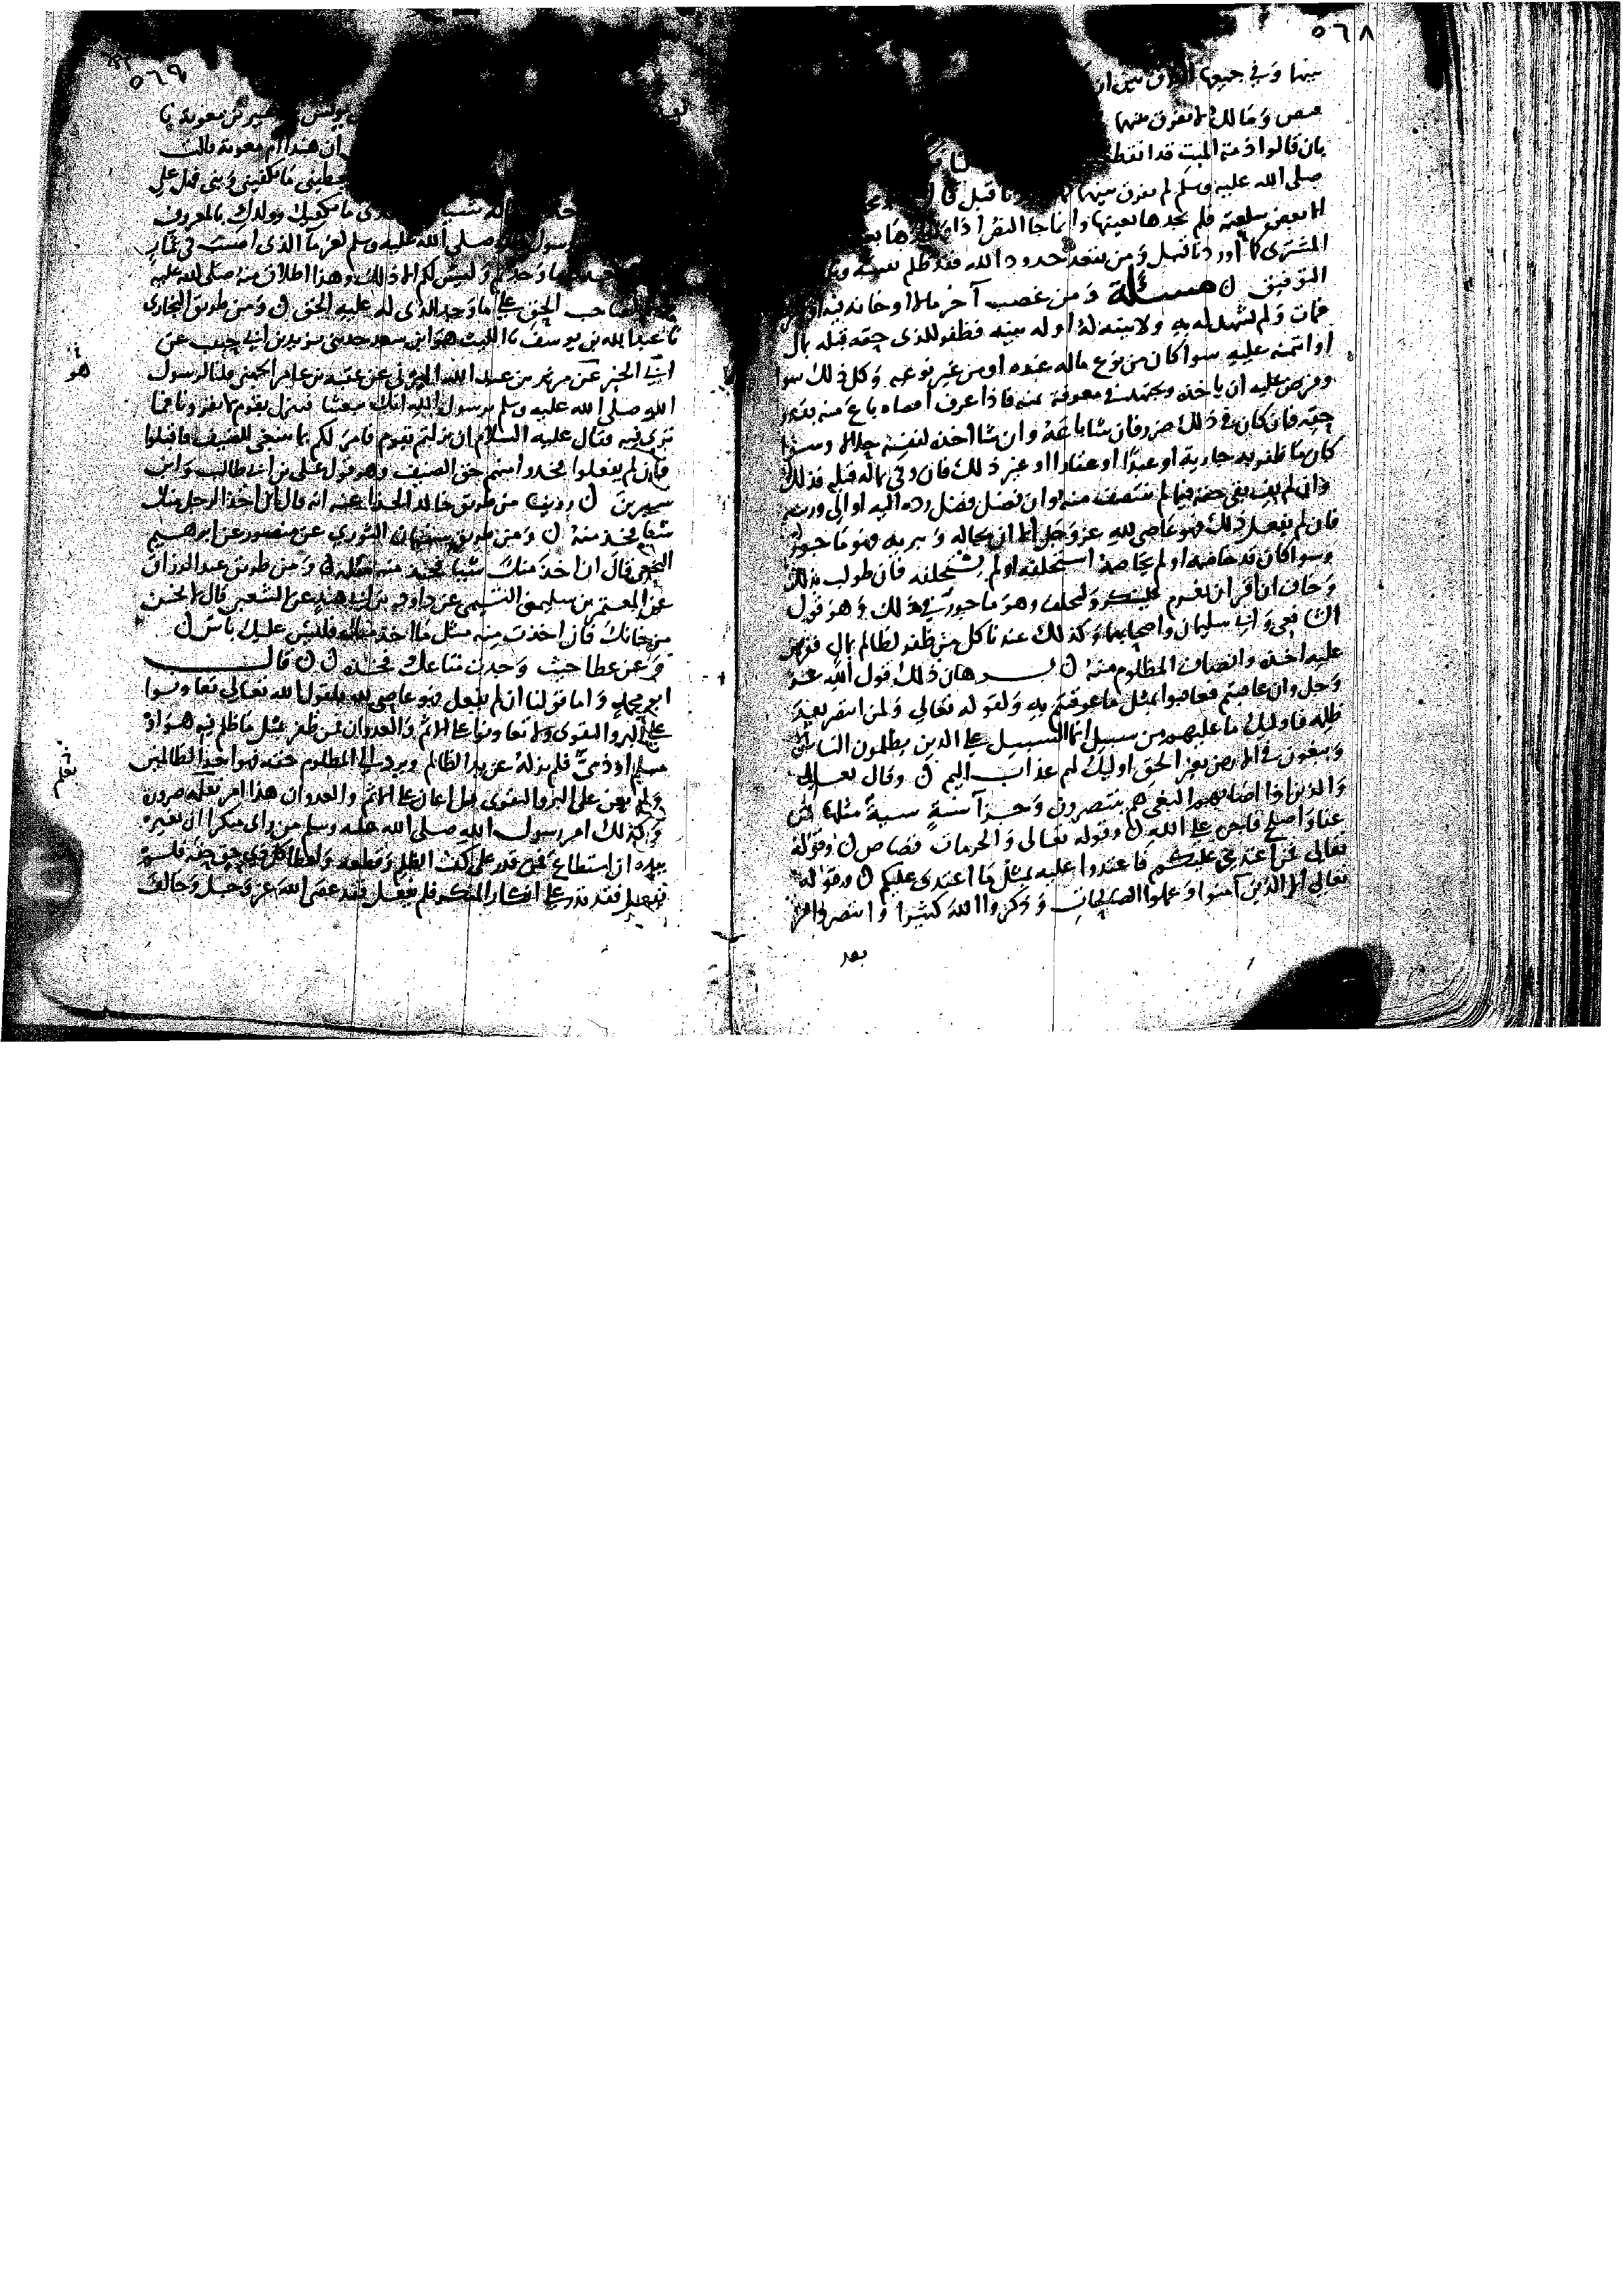 ٥٦٨
بينها وفي جميعها الفرق بين
قبض وقال لا نفرق بينها
بان قالوا ذمة الميت قد انقطعت
صلى الله عليه وسلم لم يفرق بينهما قبل قال
الا بعض سلعته فلم يجدها بعينها وانما جا النص اذا وجدها
المشترى كما اوردنا قبل ومن يتعد حدود الله فقد ظلم نفسه
التوفيق ن مسئلة ومن غصب آخر مالا او خانه فيه او
فمات ولم يشهد له به ولا بينة له او له بينه فظفر للذى حقه قبله بمال
او ائتمنه عليه سوا كان من نوع ماله عنده او من غير نوعه وكل ذلك سوا
وفرض عليه ان ياخذه ويجتهد في معرفة ثمنه فاذا عرف اقصاه باع منه بقدر
حقه فان كان في ذلك ضرر فان شا باعه وان شا اخذه لنفسه حلالا وسوا
كان ما ظفر به جارية او عبدا او عقارا او غير ذلك فان وفى بماله قبله فذلك
وان لم يف بقي حقه فيما لم ينتصف منه وان فضل فضل رده اليه او الى ورثته
فان لم يفعل ذلك فهو عاص لله عز وجل الا ان يحالله ويبريه فهو ماجور
وسوا كان قد خاصمه او لم يخاصمه استحلفه او لم يستحلفه فان طولب بذلك
وخاف ان اقر ان يغرم فلينكر وليحلف وهو ماجور في ذلك وهو قول
الشافعي وابي سليمان واصحابهما وكذلك عندنا كل من ظفر لظالم بمال ففرض
عليه اخذه وانصاف المظلوم منه ن برهان ذلك قول الله عز
وجل وان عاقبتم فعاقبوا بمثل ما عوقبتم به ولقوله تعالى ولمن انتصر بعد
ظلمه فاوليك ما عليهم من سبيل انما السبيل على الذين يظلمون الناس
ويبغون في الارض بغير الحق اوليك لهم عذاب اليم ن وقال تعالى
والذين اذا اصابهم البغي هم ينتصرون وجزآ سيئة سيية مثلها فمن
عفا واصلح فاجره على الله ن وقوله تعالى والحرمات قصاص ن وقوله
تعالى فمن اعتدى عليكم فاعتدوا عليه بمثل ما اعتدى عليكم ن وقوله
تعالى الا الذين آمنوا وعملوا الصالحات وذكروا الله كثيرا وانتصروا من
بعد
٥٦٩
يونس بن بكير معوية يا
ان هندا ام معوية قالت
يعطيني ما يكفيني وبنى فهل علي
ما يكفيك وولدك بالمعروف
رسول الله صلى الله عليه وسلم لغرما الذى اصيب في ثمار
خذوا ما وجدتم وليس لكم الا ذلك وهذا اطلاق منه صلى الله عليه
وسلم لصاحب الحق على ما وجد للذى له عليه الحق ن ومن طريق البخارى
نا عبد الله بن يوسف نا الليث هو ابن سعد حدثني يزيد بن ابي حبيب عن
ابي الخير عن مرثد بن عبد الله اليزنى عن عقبة بن عامر الجهني قلنا لرسول
هو
الله صلى الله عليه وسلم يرسول الله انك تبعثنا فننزل بقوم لا يقروننا فما
ترى فيه فقال عليه السلام ان نزلتم بقوم فامر لكم بما ينبغي للضيف فاقبلوا
فان لم يفعلوا فخذوا منهم حق الضيف وهو قول علي بن ابي طالب وابن
سيرين ن روينا من طريق خالد الحذا عنه انه قال ان اخذ الرجل منك
شيا فخذ منه ن ومن طريق سفيان الثورى عن منصور عن ابرهيم
النخعي قال ان اخذ منك شيا فخذ منه مثله ن ومن طريق عبد الرزاق
عن المعتمر بن سليمن التيمي عن داود بن ابي هند عن الشعبي قال الحسن
من خانك فان اخذت منه مثل ما اخذ منك فليس عليك باس ن
وعن عطا حيث وجدت متاعك فخذه ن ن قال
ابو محمد واما قولنا ان لم يفعل فهو عاص لله فلقول الله تعالى تعاونوا
على البر والتقوى ولا تعاونوا على الاثم والعدوان فمن ظفر بمثل ما ظلم فيه هو او
مسلم او ذمي فلم يزله عن يد الظالم ويرد الى المظلوم حقه فهو احد الظالمين
يعلم
ولم يعن على البر والتقوى بل اعان على الاثم والعدوان هذا امر نعلمه ضرورة
وكذلك امر رسول الله صلى الله عليه وسلم من راى منكرا ان يغيره
بيده ان استطاع فمن قدر على كف الظلم وقطعه واعطا كل ذي حق حقه فلم
يفعل فقد قدر على انكار المنكر فلم يفعل فقد عصى الله عز وجل وخالف